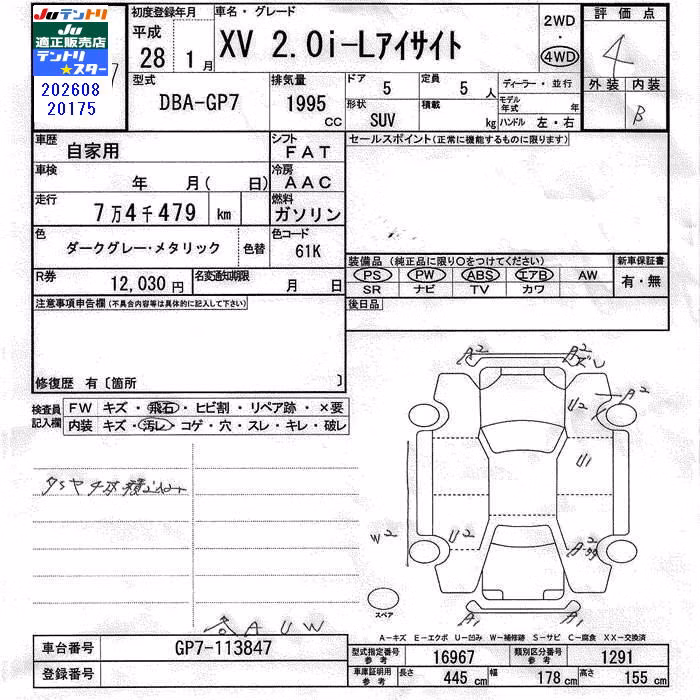 Juテントリ
Ju
適正販売店
テントリ
★スター
202608
20175
初度登録年月
平成
28 1月
車名・グレード
XV 2.0i-Lアイサイト
2WD
・
4WD
評価点
4
外装 内装
B
型式
DBA-GP7
排気量
1995 CC
ドア
5
定員
5 人
形状
SUV
積載
kg
ディーラー・並行
モデル年式 年
ハンドル 左・右
車歴
自家用
シフト
FAT
セールスポイント(正常に機能するものに限ります)
車検
年 月( 日)
冷房
AAC
走行
7万4千479 km
燃料
ガソリン
色
ダークグレー・メタリック
色替
色コード
61K
装備品 (純正品に限り〇をつけてください)
新車保証書
PS PW ABS エアB AW
SR ナビ TV カワ
有・無
R券
12,030円
名変通知期限
月 日
後日品
注意事項申告欄(不具合内容等は具体的に記入して下さい)
修復歴 有〔箇所 〕
検査員
記入欄
FW キズ・飛石・ヒビ割・リペア跡・×要
内装 キズ・汚レ・コゲ・穴・スレ・キレ・破レ
A2 A2
A2
U2
U1
W2
U2
A1 A1
スペア
A U W
A-キズ E-エクボ U-凹み W-補修跡 S-サビ C-腐食 XX-交換済
車台番号
GP7-113847
登録番号
型式指定番号
参考
16967
類別区分番号
参考
1291
車庫証明用
参考
長さ
445 cm
幅
178 cm
高さ
155 cm